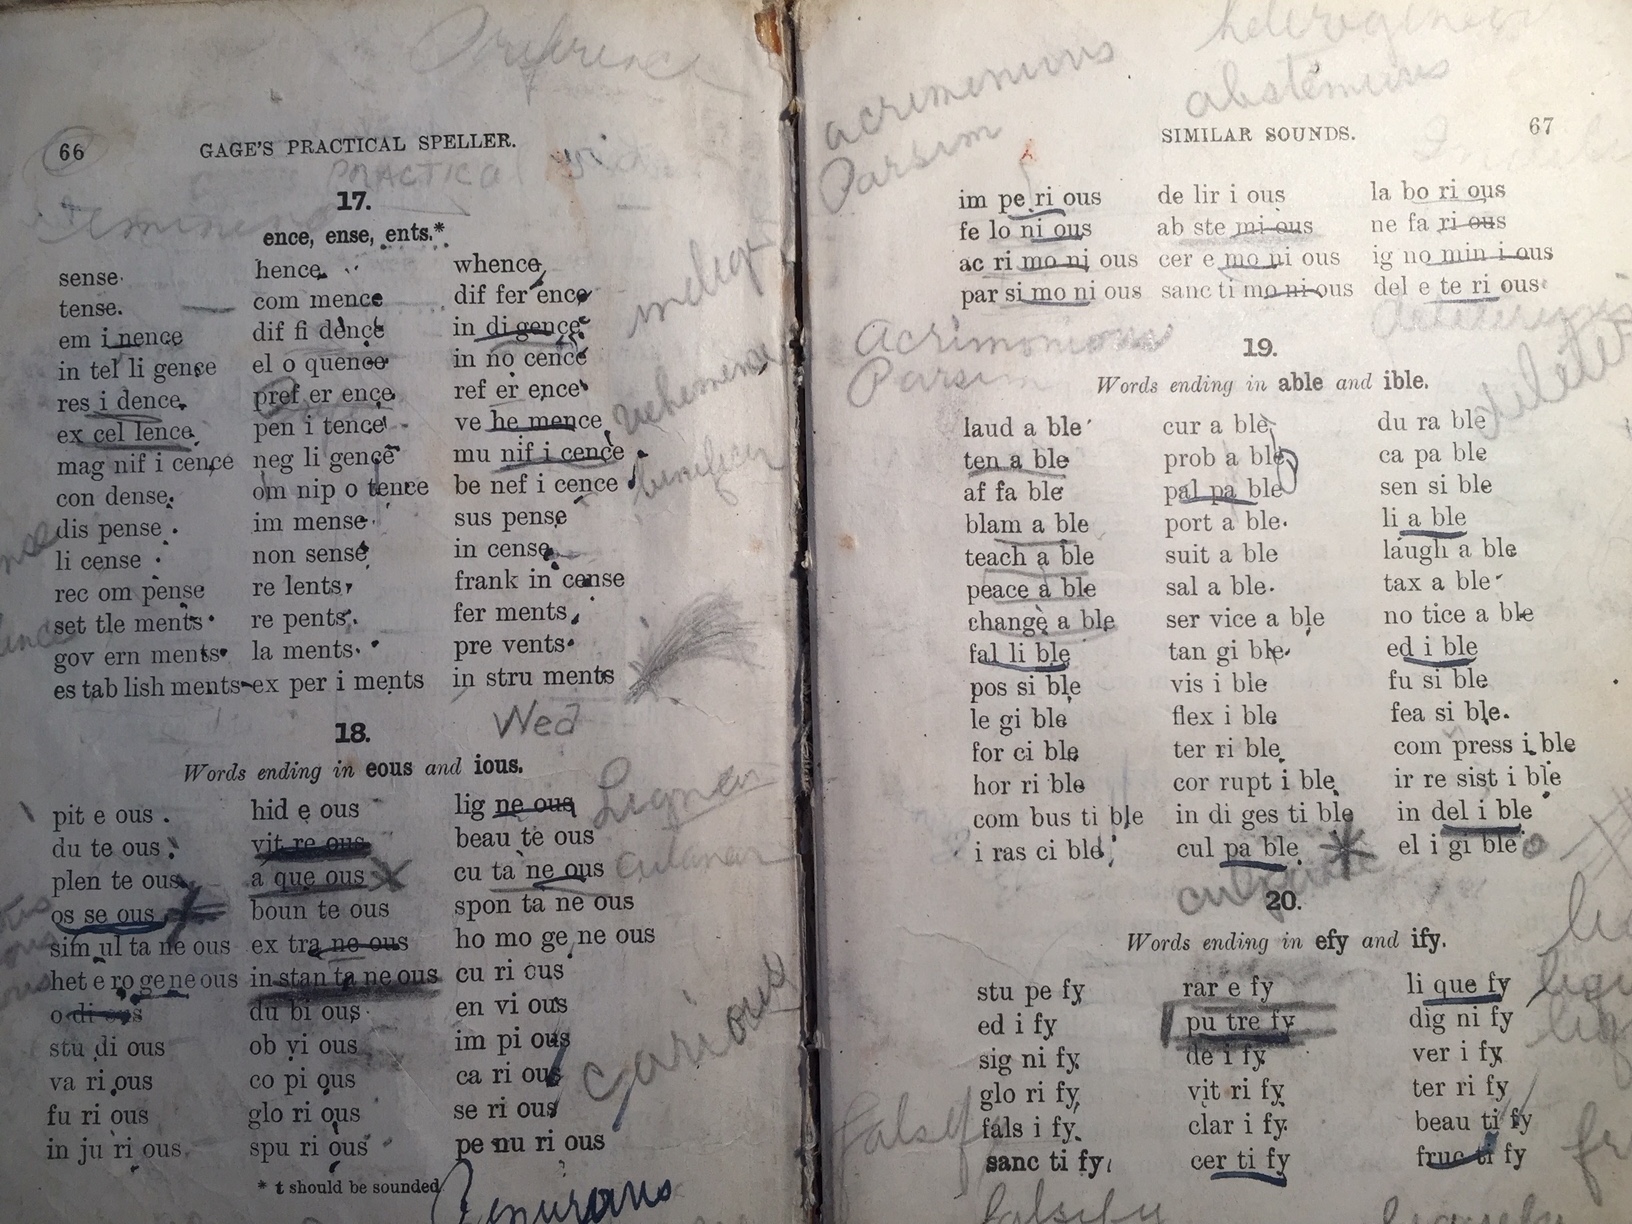 Preference
66 GAGE'S PRACTICAL SPELLER.
PRACTICAL
17.
ence, ense, ents.*
sense. hence. whence.
tense. com mence dif fer ence
em i nence dif fi dence in di gence
in tel li gence el o quence in no cence
res i dence pref er ence ref er ence
ex cel lence pen i tence ve he mence
mag nif i cence neg li gence mu nif i cence
con dense om nip o tence be nef i cence
dis pense im mense sus pense
li cense non sense in cense
rec om pense re lents frank in cense
set tle ments re pents fer ments
gov ern ments la ments pre vents
es tab lish ments ex per i ments in stru ments
vehemence
Wed
18.
Words ending in eous and ious.
pit e ous hid e ous lig ne ous
du te ous vit re ous beau te ous
plen te ous a que ous cu ta ne ous
os se ous boun te ous spon ta ne ous
sim ul ta ne ous ex tra ne ous ho mo ge ne ous
het e ro ge ne ous in stan ta ne ous cu ri ous
o di ous du bi ous en vi ous
stu di ous ob vi ous im pi ous
va ri ous co pi ous ca ri ous
fu ri ous glo ri ous se ri ous
in ju ri ous spu ri ous pe nu ri ous
carious
* t should be sounded
abstemius
acrimenius
Parsim
SIMILAR SOUNDS. 67
im pe ri ous de lir i ous la bo ri ous
fe lo ni ous ab ste mi ous ne fa ri ous
ac ri mo ni ous cer e mo ni ous ig no min i ous
par si mo ni ous sanc ti mo ni ous del e te ri ous
Acrimonious
Parsim
19.
Words ending in able and ible.
laud a ble cur a ble du ra ble
ten a ble prob a ble ca pa ble
af fa ble pal pa ble sen si ble
blam a ble port a ble li a ble
teach a ble suit a ble laugh a ble
peace a ble sal a ble tax a ble
change a ble ser vice a ble no tice a ble
fal li ble tan gi ble ed i ble
pos si ble vis i ble fu si ble
le gi ble flex i ble fea si ble
for ci ble ter ri ble com press i ble
hor ri ble cor rupt i ble ir re sist i ble
com bus ti ble in di ges ti ble in del i ble
i ras ci ble cul pa ble el i gi ble
20.
Words ending in efy and ify.
stu pe fy rar e fy li que fy
ed i fy pu tre fy dig ni fy
sig ni fy de i fy ver i fy
glo ri fy vit ri fy ter ri fy
fals i fy clar i fy beau ti fy
sanc ti fy cer ti fy fruc ti fy
falsify